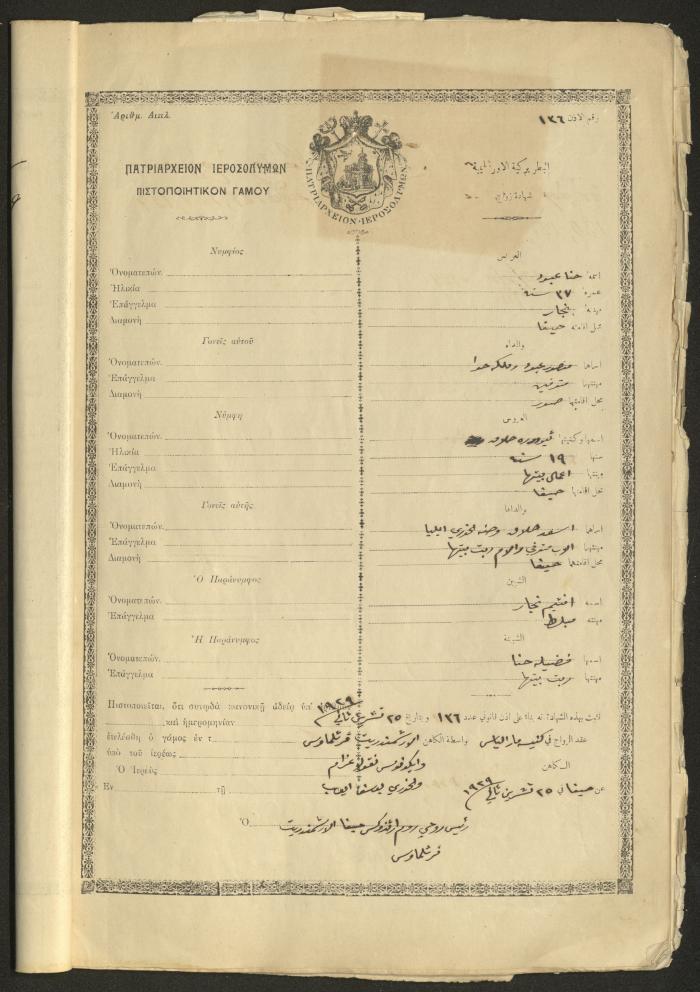 Ἀριθμ. Διπλ.
رقم الاذن ١٣٦
ΠΑΤΡΙΑΡΧΕΙΟΝ ΙΕΡΟΣΟΛΥΜΩΝ
البطريركية الاورشليمية
ΠΙΣΤΟΠΟΙΗΤΙΚΟΝ ΓΑΜΟΥ
شهادة زواج
ΠΑΤΡΙΑΡΧΕΙΟΝ·ΙΕΡΟΣΟΛΥΜΩΝ
Νυμφίος
العريس
Ὀνοματεπών.
اسمه حنا عبود
Ἡλικία
عمره ٢٧ سنة
Ἐπάγγελμα
مهنته نجار
Διαμονή
محل اقامته حيفا
Γονεῖς αὐτοῦ
والداه
Ὀνοματεπών.
اسماهما منصور عبود وملكه حوا
Ἐπάγγελμα
مهنتهما متوفين
Διαμονή
محل اقامتهما صور
Νύμφη
العروس
Ὀνοματεπών.
اسمها وكنيتها فيودوره حلاق
Ἡλικία
سنها ١٩ سنة
Ἐπάγγελμα
مهنتها اعمال بيتها
Διαμονή
محل اقامتها حيفا
Γονεῖς αὐτῆς
والداها
Ὀνοματεπών.
اسماهما اسعد حلاق وحنه الخوري ايليا
Ἐπάγγελμα
مهنتهما الاب متوفي والام ربت بيتها
Διαμονή
محل اقامتهما حيفا
Ὁ Παράνυμφος
الشبين
Ὀνοματεπών.
اسمه افتيم نجار
Ἐπάγγελμα
مهنته مبلط
Ἡ Παράνυμφος
الشبينة
Ὀνοματεπών.
اسمها فضيله حنا
Ἐπάγγελμα
مهنتها ربت بيتها
Πιστοποιεῖται, ὅτι συνῳδὰ κανονικῇ ἀδείᾳ ὑπ'
١٩٢٩
بهذه الشهادة انه بناء على اذن قانوني عدد ١٣٦ وبتاريخ ٢٥ تشرين ثاني
καὶ ἡμερομηνίαν
ἐτελέσθη ὁ γάμος ἐν τ
عقد الزواج في كنيسة مار الياس بواسطة الكاهن الارشمندريت
ὑπὸ τοῦ ἱερέως
نقولا عزام
Ὁ Ἱερεύς
الكاهن
والخوري يوسف ايوب
Ἐν τῇ
عن حيفا في ٢٥ تشرين ثاني ١٩٢٩
Ὁ
رئيس روحي روم ارثوذكس حيفا الارشمندريت